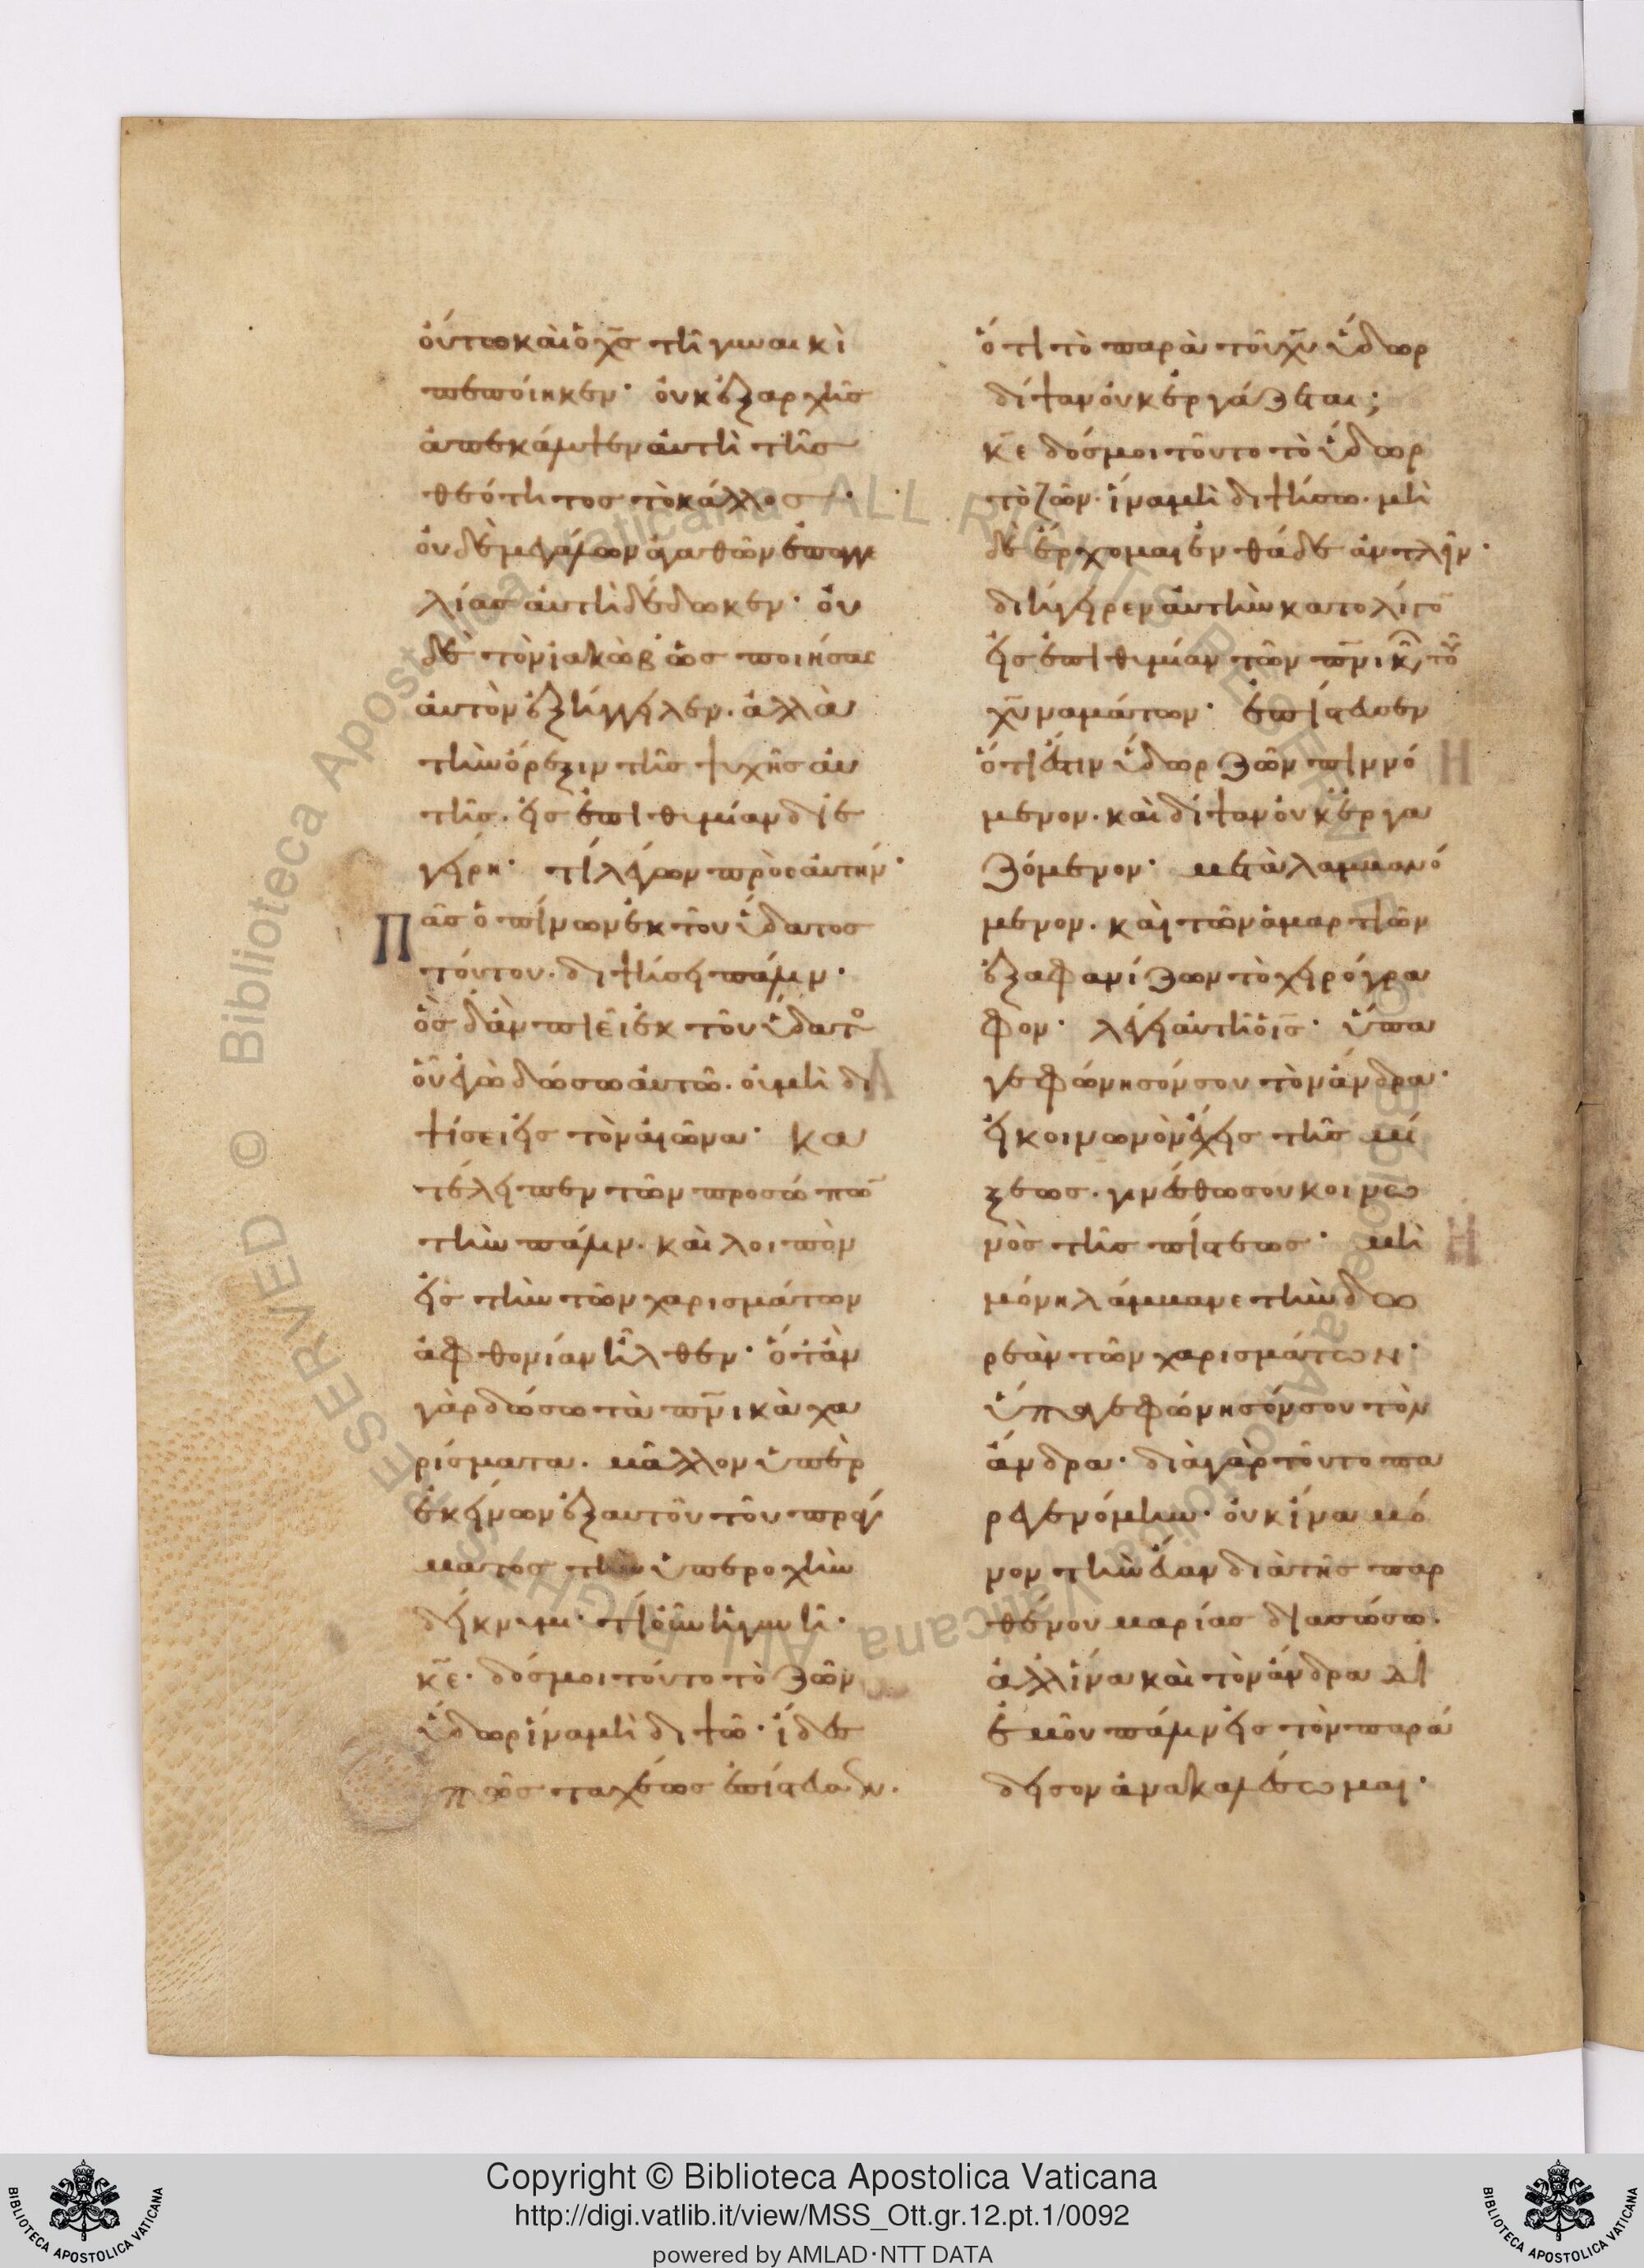 όυτωσ καὶ ὁ χ̅σ τῆ γυναικὶ
πεποίηκεν· ὀυκ ἐξαρχῆσ
ἀπεκάλυψεν ἀυτὴ τῆσ
θεότητοσ τὸ κάλλοσ·
ὀυδὲ μεγάλων ἀγαθῶν ἐπαγγε
λίασ ἀυτὴ δέδωκεν· ὀυ
δὲ τὸν ϊακὼβ ὡσ ποιήσασ
ἀυτὸν ἐξήγγειλεν. ἀλλὰ
τὴν ὄρεξιν τῆσ ψυχῆσ ἀυ
τῆσ. εἰσ ἐπιθυμίαν διε
γείρη· τί λέγων πρὸσ ἀυτήν·
Πᾶσ ὁ πίνων ἐκ τοῦ ὕδατοσ
τούτου. διψήσει πάλιν·
ὃσ δἂν πίει ἐκ τοῦ ὕδατο
οὗ ἐγὼ δώσω ἀυτῶ. ὀι μὴ δι
ψίσει εἰσ τὸν αἰῶνα· κα
τέλειπεν τῶν προσώπω̅
τὴν πάλιν. καὶ λοιπὸν
εἰσ τὴν τῶν χαρισμάτων
ἀφθονίαν ἦλθεν· ὅταν
γὰρ δώσω τὰ πν̅ικὰ χα
ρίσματα. μᾶλλον ὑπὲρ
ἐκείνων ἐξ αυτοῦ τοῦ πράγ
ματοσ τὴν ὑπεροχὴν
δείκνυμι· τί οὖν ἡ γυνῆ·
κ̅ε. δόσ μοι τόυτο τὸ ζῶν
ὕδωρ ἵνα μὴ διψῶ· ἴδε
πῶσ ταχέωσ ἐπίστευσεν.
ὅτι τὸ παρὰ τοῦ χ̅υ ὕδωρ
δίψαν ὀυκ ἐργάζεται;
κ̅ε δόσ μοι τοῦτο τὸ ὕδωρ
τὸ ζῶν. ἵνα μὴ διψήσω. μὴ
δὲ ἔρχομαι ἐνθάδε ἀντλεῖν·
διήγειρεν ἀυτὴν κατολίγο̅
εἰσ ἐπιθυμίαν τῶν πν̅ικῶν τοῦ
χ̅υ ναμάτων· ἐπίστευσεν
ὅτι ἔστιν ὕδωρ ζῶν πιννό
μενον. καὶ δίψαν ὀυκ ἐργα
ζόμενον· μεταλαμμανό
μενον. καὶ τῶν ἁμαρτιῶν
ἐξαφανίζων τὸ χειρόγρα
φον· λέγει ἀυτῆ ὁ ι̅σ· ὕπα
γε φώνησόν σου τὸν ἄνδρα·
εἰ κοινωνὸν ἔχεισ τῆσ μί
ξεωσ. γινέσθω σου κοινω
νὸσ τῆσ πίστεωσ· μὴ
μόνη λάμμανε τὴν δω
ρεὰν τῶν χαρισμάτων·
ὕπαγε φώνησόν σου τὸν
ἄνδρα· διὰ γὰρ τοῦτο πα
ρεγενόμην· οὐκ ἵνα μό
νον τὴν ἔυαν διὰ τῆσ παρ
θένου μαρίασ διασώσω.
ἀλλ ἵνα καὶ τὸν ἄνδρα δι
ἐμοῦ πάλιν εἰσ τὸν παρά
δεισον ἀνακαλέσωμαι·
Copyright © Biblioteca Apostolica Vaticana
http://digi.vatlib.it/view/MSS_Ott.gr.12.pt.1/0092
powered by AMLAD·NTT DATA